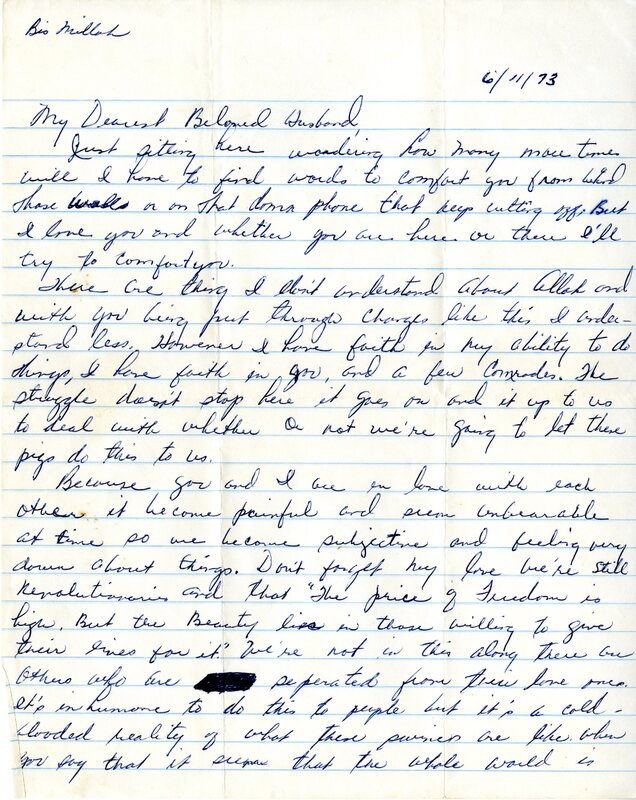 Bis Millah
6/11/73
My Dearest Beloved Husband,
Just sitting here wondering how many more times
will I have to find words to comfort you from behind
those walls or on that damn phone that keep cutting off. But
I love you and whether you are here or there I'll
try to comfort you.
There are thing I don't understand about Allah and
with you being put through changes like this I under-
stand less. However I have faith in my ability to do
things, I have faith in you, and a few Comrades. The
struggle doesn't stop here it goes on and it up to us
to deal with whether or not we're going to let these
pigs do this to us.
Because you and I are in love with each
other it become painful and seem unbearable
at time so we become subjective and feeling very
down about things. Don't forget my love we're still
Revolutionaries and that "The price of Freedom is
high. But the Beauty lies in those willing to give
their lives for it." We're not in this along there are
others who are seperated from their love ones.
It's inhumane to do this to people but it's a cold-
blooded reality of what these swines are like. when
you say that it seems that the whole world is